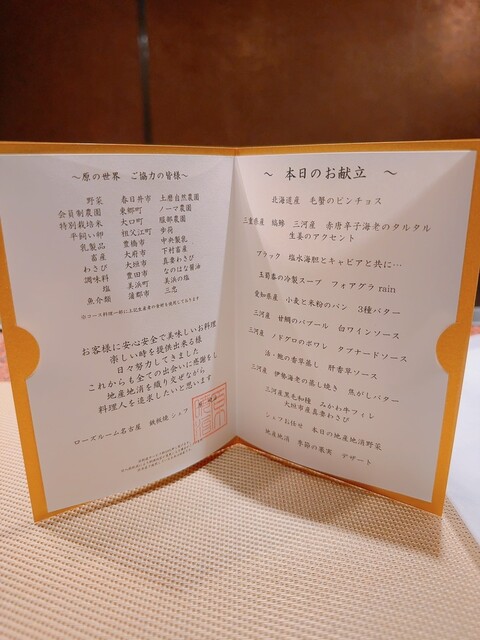 ～原の世界　ご協力の皆様～
野菜　春日井市　土磨自然農園
会員制農園　東郷町　ノーマ農園
特別栽培米　大口町　服部農園
平飼い卵　祖父江町　歩荷
乳製品　豊橋市　中央製乳
畜産　大府市　下村畜産
わさび　大垣市　真妻わさび
調味料　豊田市　なのはな醤油
塩　美浜町　美浜の塩
魚介類　蒲郡市　三忠
※コース料理一部に上記生産者の食材を使用しております
お客様に安心安全で美味しいお料理
楽しい時を提供出来る様
日々努力してきました
これからも全ての出会いに感謝をし
地産地消を織り交ぜながら
料理人を追求したいと思います
ローズルーム名古屋　鉄板焼 シェフ
～　本日のお献立　～
北海道産　毛蟹のピンチョス
三重県産　縞鯵　三河産　赤唐辛子海老のタルタル
生姜のアクセント
ブラック　塩水海胆とキャビアと共に…
玉蜀黍の冷製スープ　フォアグラ rain
愛知県産　小麦と米粉のパン　3種バター
三河産　甘鯛のバプール　白ワインソース
三河産　ノドグロのポワレ　タプナードソース
活・鮑の香草蒸し　肝香草ソース
三河産　伊勢海老の蒸し焼き　焦がしバター
三河産黒毛和種　みかわ牛フィレ
大垣市産真妻わさび
シェフお任せ　本日の地産地消野菜
地産地消　季節の菓実　デザート